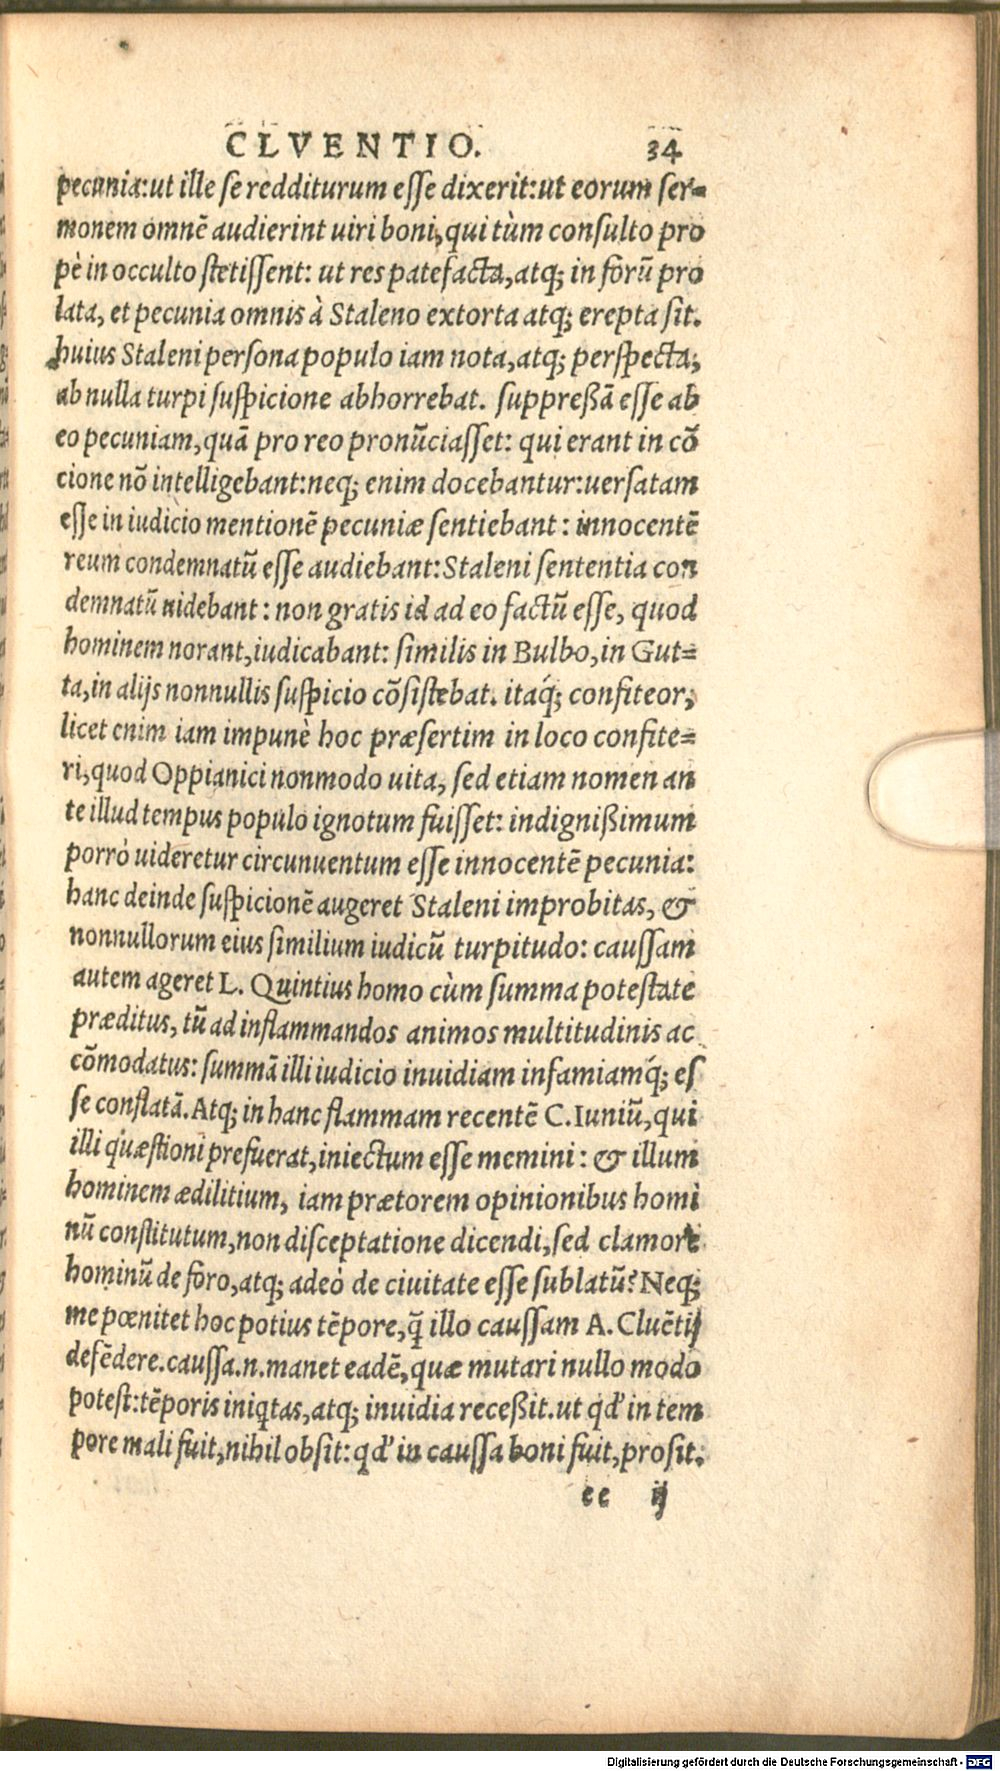 CLVENTIO. 34
pecunia:ut ille se redditurum esse dixerit:ut eorum ser-
monem omnē audierint uiri boni, qui tùm consulto pro
pè in occulto stetissent: ut res patefacta, atq; in forū pro
lata, et pecunia omnis à Staleno extorta atq; erepta sit.
huius Staleni persona populo iam nota, atq; perspecta,
ab nulla turpi suspicione abhorrebat. suppreßā esse ab
eo pecuniam, quā pro reo pronūciasset: qui erant in cō
cione nō intelligebant:neq; enim docebantur:uersatam
esse in iudicio mentionē pecuniæ sentiebant: innocentē
reum condemnatū esse audiebant: Staleni sententia con
demnatū uidebant: non gratis id ad eo factū esse, quod
hominem norant, iudicabant: similis in Bulbo, in Gut=
ta, in alijs nonnullis suspicio cōsistebat. itaq́; confiteor,
licet enim iam impunè hoc præsertim in loco confite=
ri, quod Oppianici nonmodo uita, sed etiam nomen an
te illud tempus populo ignotum fuisset: indignißimum
porrò uideretur circunuentum esse innocentē pecunia:
hanc deinde suspicionē augeret Staleni improbitas, &
nonnullorum eius similium iudicū turpitudo: caussam
autem ageret L. Quintius homo cùm summa potestate
præditus, tū ad inflammandos animos multitudinis ac
cōmodatus: summā illi iudicio inuidiam infamiamq́; es
se conflatā. Atq; in hanc flammam recentē C. Iuniū, qui
illi quæstioni prefuerat, iniectum esse memini: & illum
hominem ædilitium, iam prætorem opinionibus homi
nū constitutum, non disceptatione dicendi, sed clamore
hominū de foro, atq; adeò de ciuitate esse sublatū? Neq;
me pœnitet hoc potius tēpore, q̄ illo caussam A. Cluētij
defēdere. caussa.n.manet eadē, quæ mutari nullo modo
potest: tēporis iniqtas, atq; inuidia receßit. ut qd' in tem
pore mali fuit, nihil obsit: qd' in caussa boni fuit, prosit.
ee ij
Digitalisierung gefördert durch die Deutsche Forschungsgemeinschaft - DFG